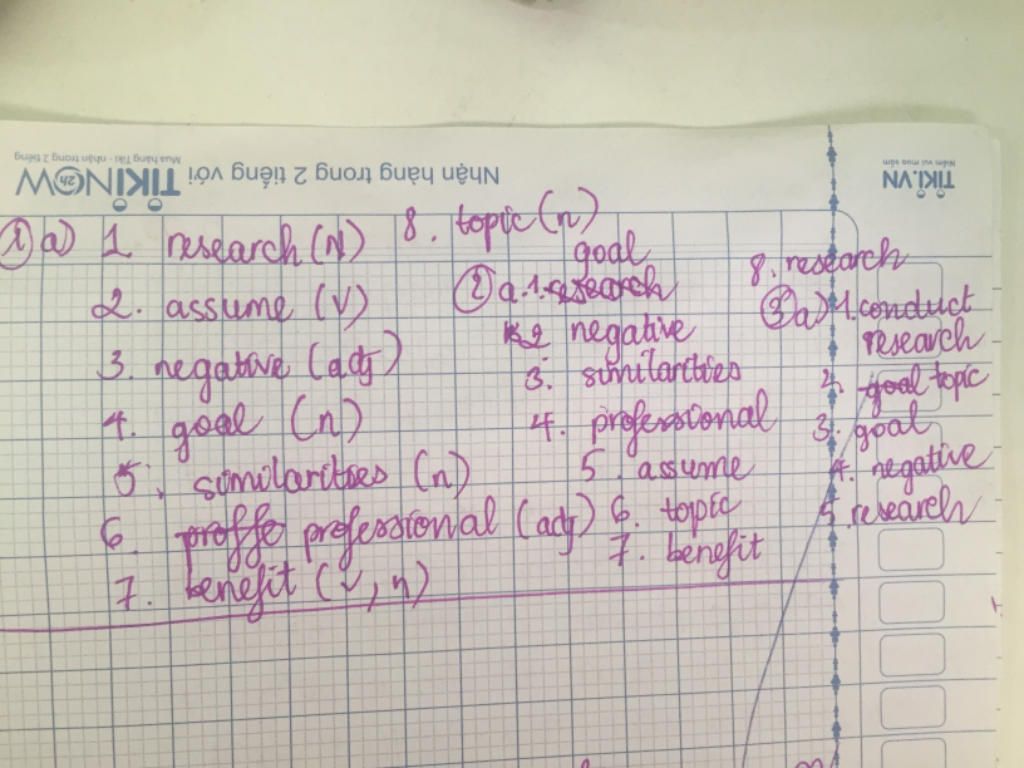 Nhận hàng trong 2 tiếng với TIKINOW 2h
Mua hàng Tiki - nhận trong 2 tiếng
TIKI.VN
Niềm vui mua sắm
① a) 1 research (N)
2. assume (V)
3. negative (adj)
4. goal (n)
5. similarities (n)
6. proffe professional (adj)
7. benefit (v, n)
8. topic (n)
goal
② a. 1. research
2 negative
3. similarities
4. professional
5. assume
6. topic
7. benefit
8. research
③ a) 1. conduct
research
2. goal topic
3. goal
4. negative
5. research